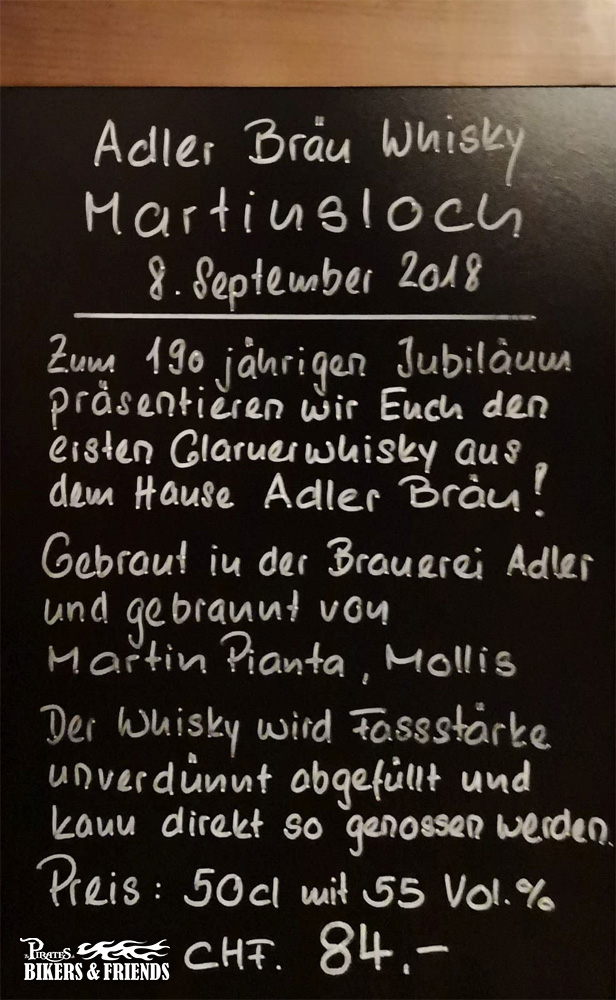 Adler Bräu Whisky
Martinsloch
8. September 2018
Zum 190 jährigen Jubiläum
präsentieren wir Euch den
ersten Glarnerwhisky aus
dem Hause Adler Bräu!
Gebraut in der Brauerei Adler
und gebrannt von
Martin Pianta, Mollis
Der Whisky wird Fassstärke
unverdünnt abgefüllt und
kann direkt so genossen werden.
Preis: 50cl mit 55 Vol.%
CHF. 84.-
PIRATES
BIKERS & FRIENDS